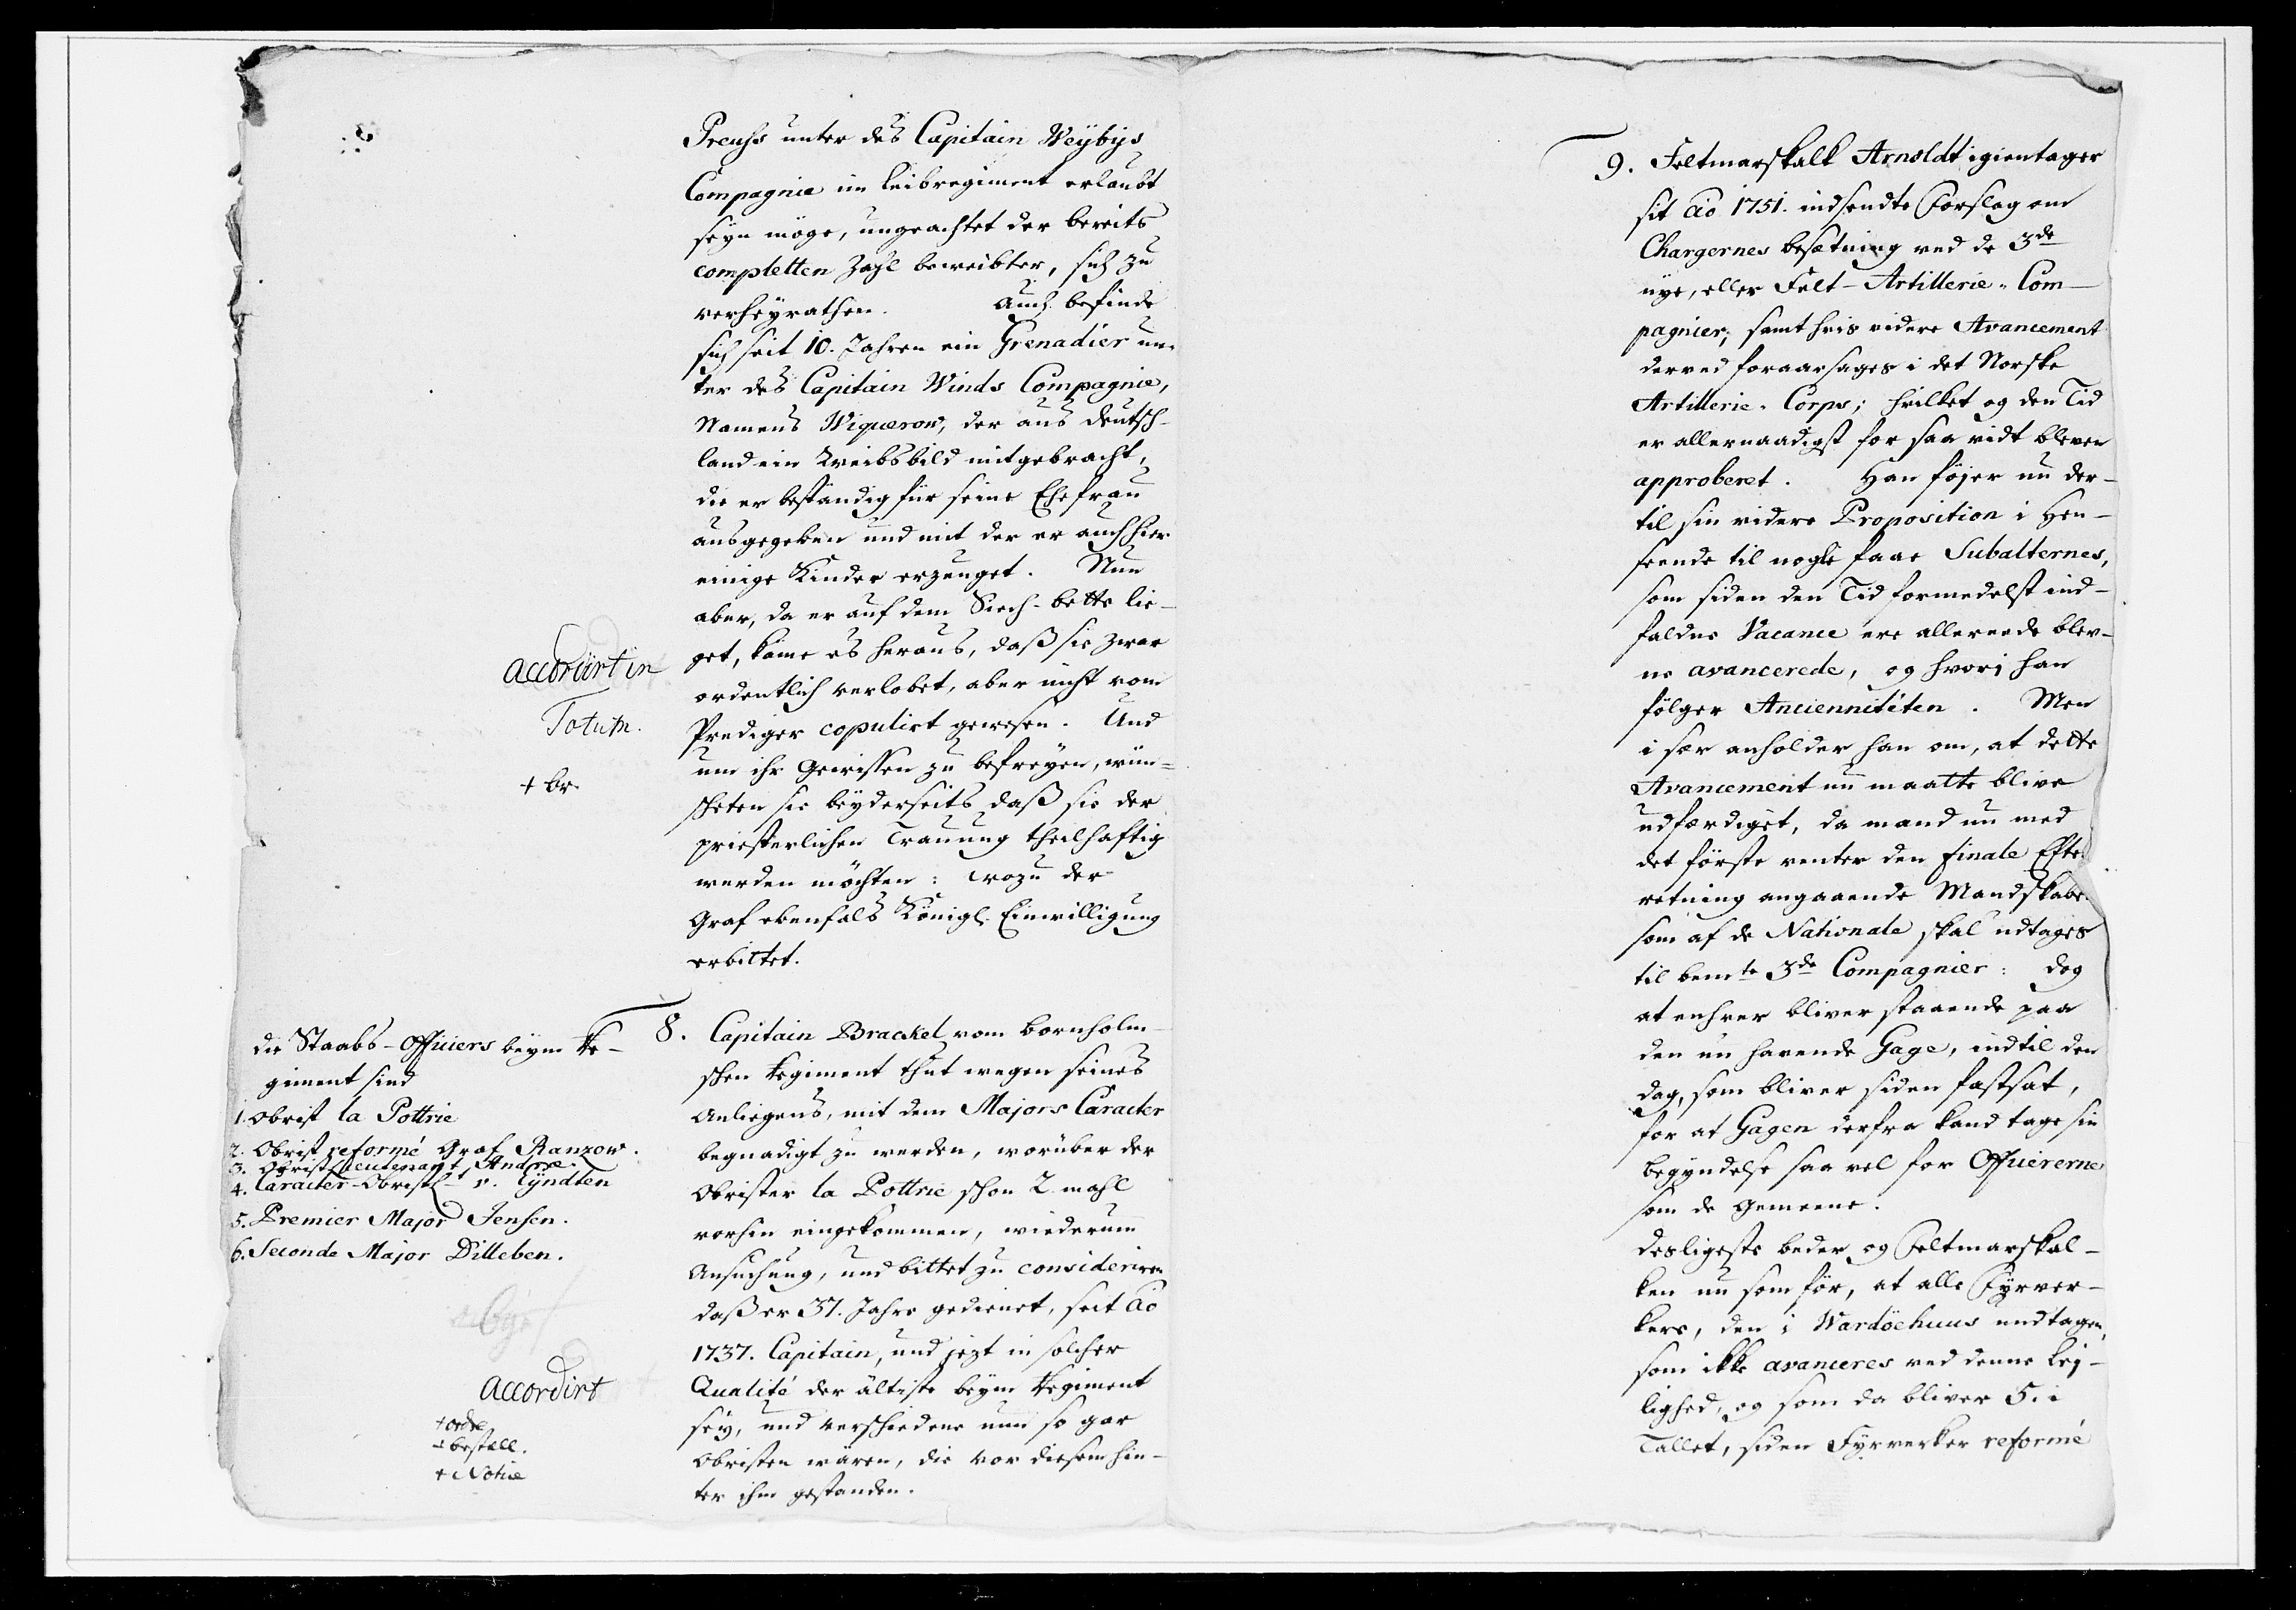 Preuss unter des Capitain Weybijs
Compagnie im Leibregiment erlaubt
seyn möge, ungeachtet der bereits
completten Zahl beweibter, sich zu
verheyrathen. Auch befinde
sich seit 10. Jahren ein Grenadier un-
ter des Capitain Winds Compagnie,
Namens Wiquerow, der aus Deutsch-
land ein Weibsbild mitgebracht,
die er beständig für seine Ehefrau
ausgegeben und mit der er auch hier
einige Kinder erzeuget. Nun
aber, da er auf dem Siech-bette lie-
get, käme es heraus, daß sie zwar
ordentlich verlobet, aber nicht vom
Prediger copulirt gewesen. Und
um ihr Gewissen zu befreyen, wün-
scheten sie beyderseits, daß sie der
priesterlichen Trauung theilhaftig
werden möchten: wozu der
Graf ebenfals Königl. Einwilligung
erbittet.
accordirt in
Totum.
+ br.
8. Capitain Brackel vom Bornholm-
schen Regiment thut wegen seines
Anliegens, mit dem Majors Caracter
begnadigt zu werden, worüber der
Obrister la Pottrie schon 2 mahl
vorhin eingekommen, wiederum
Ansuchung, und bittet zu consideriren
daß er 37. Jahre gedienet, seit Ao
1737. Capitain, und jezt in solcher
Qualité der ältiste beym Regiment
sey, und verschiedene nun so gar
Obristen wären, die vor diesem hin-
ter ihm gestanden.
die Staabs-Officiers beym Re-
giment sind
1. Obrist la Pottrie
2. Obrist reformé Graf Ranzow.
3. Obristlieutenant Andræ
4. Caracter-Obristl. v. Lyndten
5. Premier Major Jensen.
6. Seconde Major Dilleben.
accordirt
+ ordre
+ bestall.
+ Notice
9. Feltmarskalk Arnoldt igientager
sit Ao 1751. indsendte Forslag om
Chargernes besætning ved de 3de
nye, eller Felt-Artillerie-Com-
pagnier, samt hvis videre Avancement
derved foraarsages i det Norske
Artillerie-Corps; hvilket og den Tid
er allernaadigst for saa vidt bleven
approberet. Han föjer nu der-
til sin videre Proposition i Hen-
seende til nogle faae Subalternes,
som siden den Tid formedelst ind-
faldne Vacance ere allereede blev-
ne avancerede, og hvori han
fölger Anciennitéten. Men
i sær anholder han om, at dette
Avancement nu maatte blive
udfærdiget, da mand nu med
det förste venter den finale Efter-
retning angaaende Mandskabet
som af de Nationale skal udtages
til bemte 3de Compagnier: dog
at enhver bliver staaende paa
den nu havende Gage, indtil den
dag, som bliver siden fastsat,
for at Gagen derfra kand tage sin
begyndelse saa vel for Officererne
som de Gemeene.
Desligeste beder og Feltmarskal-
ken nu som för, at alle Fyrver-
kere, den i Wardöehuus undtagen,
som ikke avanceres ved denne Lej-
lighed, og som da bliver 5. i
Tallet, siden Fyrverker reformé